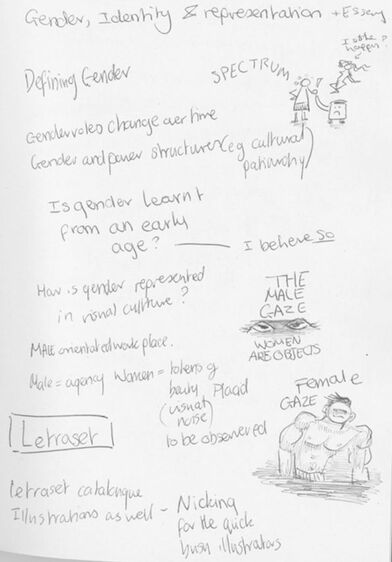 Gender, Identity & representation + Essay
Defining Gender
SPECTRUM
Gender roles change over time
Gender and power structures (eg cultural
patriarchy)
Is gender learnt
from an early
age? — I believe so
How is gender represented
in visual culture?
THE
MALE
GAZE
WOMEN
ARE OBJECTS
MALE orientated work place.
Male = agency Women = tokens of
beauty Placid
(visual
noise)
to be observered
Female
GAZE
Letraset
Letraset catalogue
Illustrations as well - Nicking
for the quick
busy illustrators